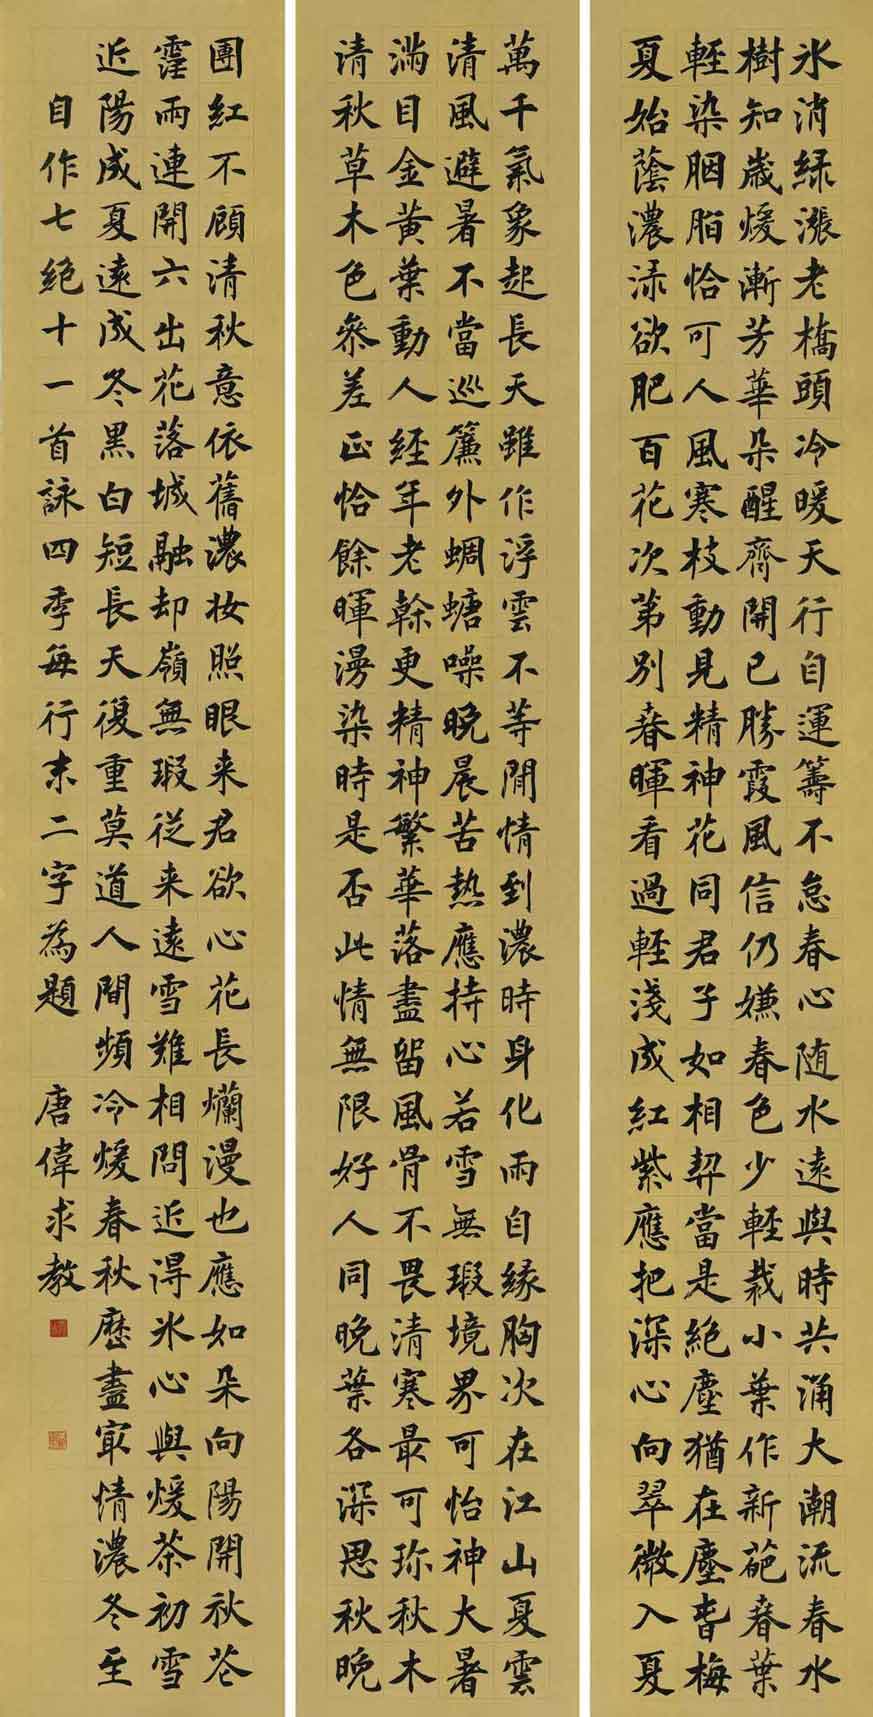 氷消緑漲老橋頭冷暖天行自運籌不怠春心随水遠與時共涌大潮流春水
樹知歲煖漸芳華朵醒齊開已勝霞風信仍嫌春色少輕栽小葉作新葩春葉
輕染胭脂恰可人風寒枝動見精神花同君子如相契當是絕塵猶在塵旾梅
夏始蔭濃渌欲肥百花次第別春暉看過輕淺成紅紫應把深心向翠微入夏
萬千氣象起長天雖作浮雲不等閒情到濃時身化雨自緣胸次在江山夏雲
清風避暑不當巡簾外蜩螗噪晚晨苦熱應持心若雪無瑕境界可怡神大暑
滿目金黃葉動人經年老榦更精神繁華落盡留風骨不畏清寒最可珎秋木
清秋草木色參差正恰餘暉漫染時是否此情無限好人同晚葉各深思秋晚
團紅不顧清秋意依舊濃妝照眼来君欲心花長爛漫也應如朵向陽開秋芲
霪雨連開六出花落城融却嶺無瑕從来遠雪難相問近得氷心與煖茶初雪
近陽成夏遠成冬黑白短長天復重莫道人間頻冷煖春秋歷盡㝡情濃冬至
自作七絕十一首詠四季每行末二字為題 唐偉求教